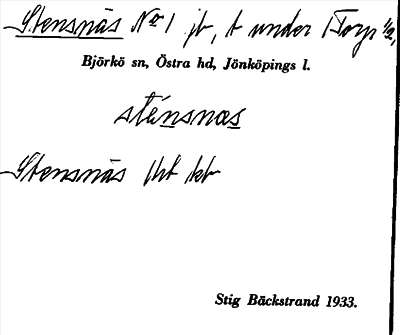 Stensnäs No 1 jb, t under Torp 1/2,
Björkö sn, Östra hd, Jönköpings l.
sténsnæs
Stensnäs
Stig Bäckstrand 1933.